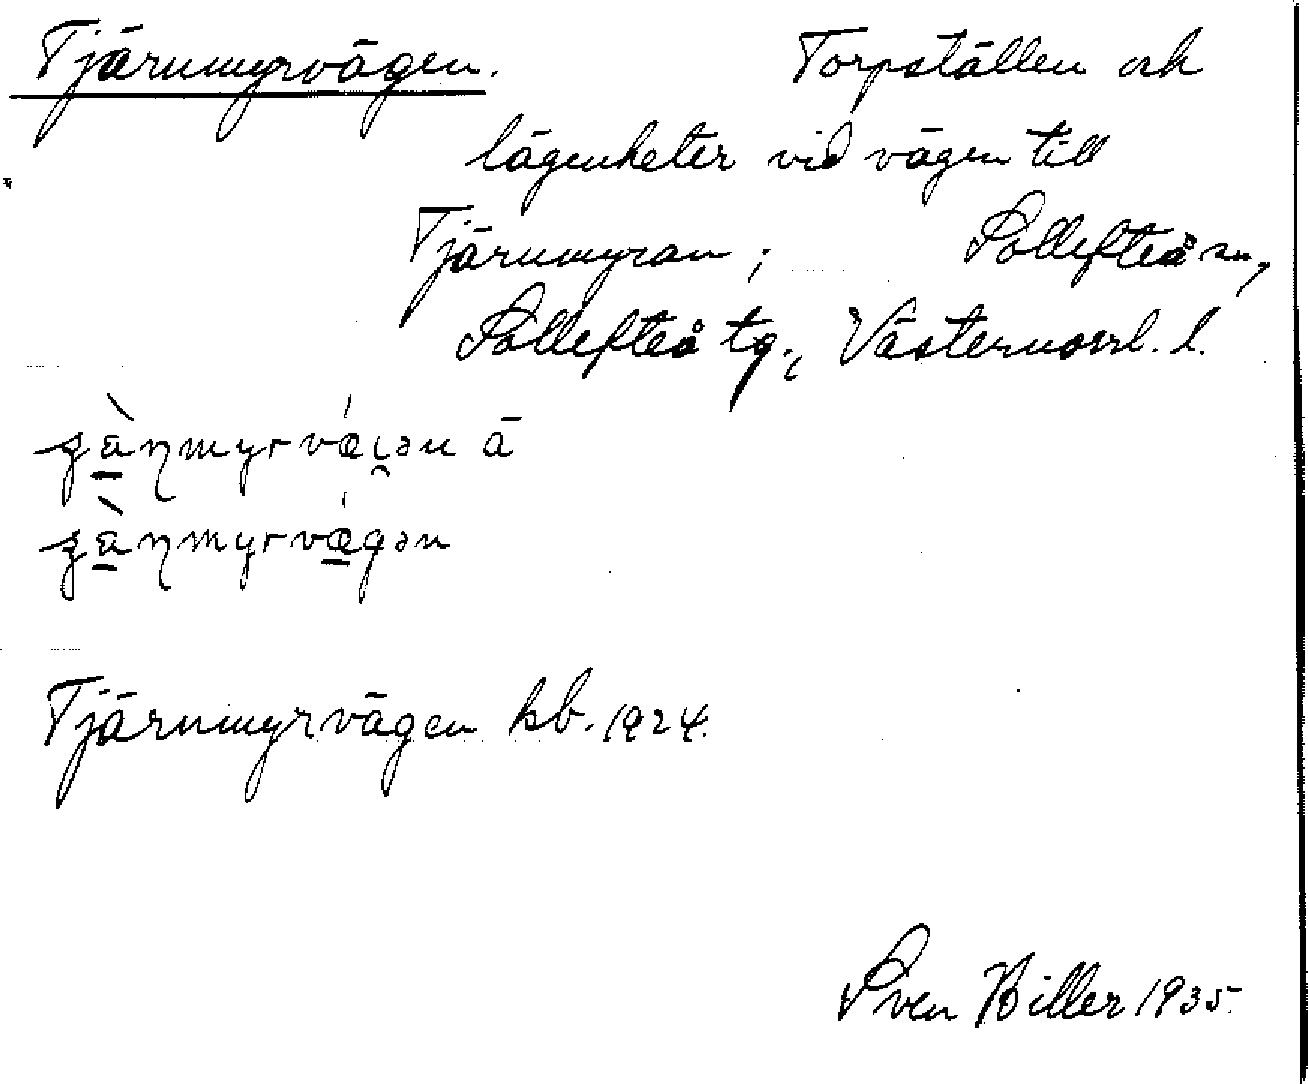 Tjärnmyrvägen. Torpställen och
lägenheter vid vägen till
Tjärnmyran; Sollefteå sn,
Sollefteå tg., Västernorrl. l.
Tjärnmyrvägen kb. 1924.
Sven Biller 1935.